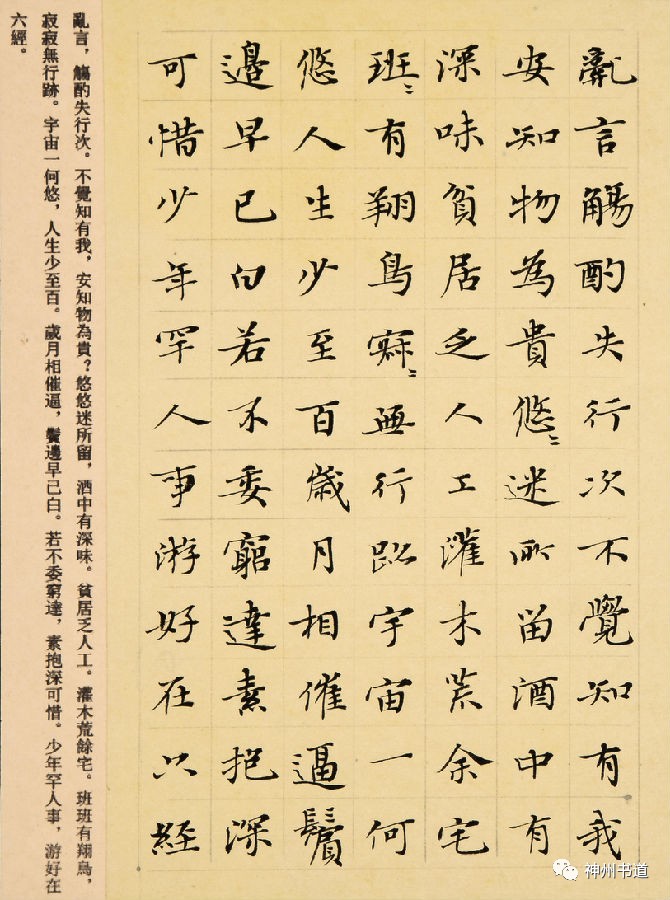 亂言觴酌失行次不覺知有我
安知物為貴悠〻迷所留酒中有
深味貧居乏人工灌木荒余宅
班〻有翔鳥寂〻無行跡宇宙一何
悠人生少至百歲月相催逼鬢
邊早已白若不委窮達素抱深
可惜少年罕人事游好在六經
亂言，觴酌失行次。不覺知有我，安知物為貴？悠悠迷所留，洒中有深味。貧居乏人工。灌木荒餘宅。班班有翔鳥，
寂寂無行跡。宇宙一何悠，人生少至百。歲月相催逼，鬢邊早已白。若不委窮達，素抱深可惜。少年罕人事，游好在
六經。
神州书道